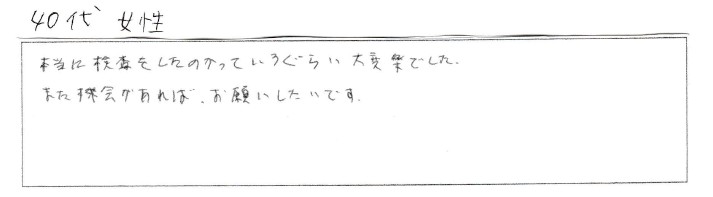 40代 女性
本当に検査をしたのかっていうぐらい大変楽でした.
また機会があれば、お願いしたいです.